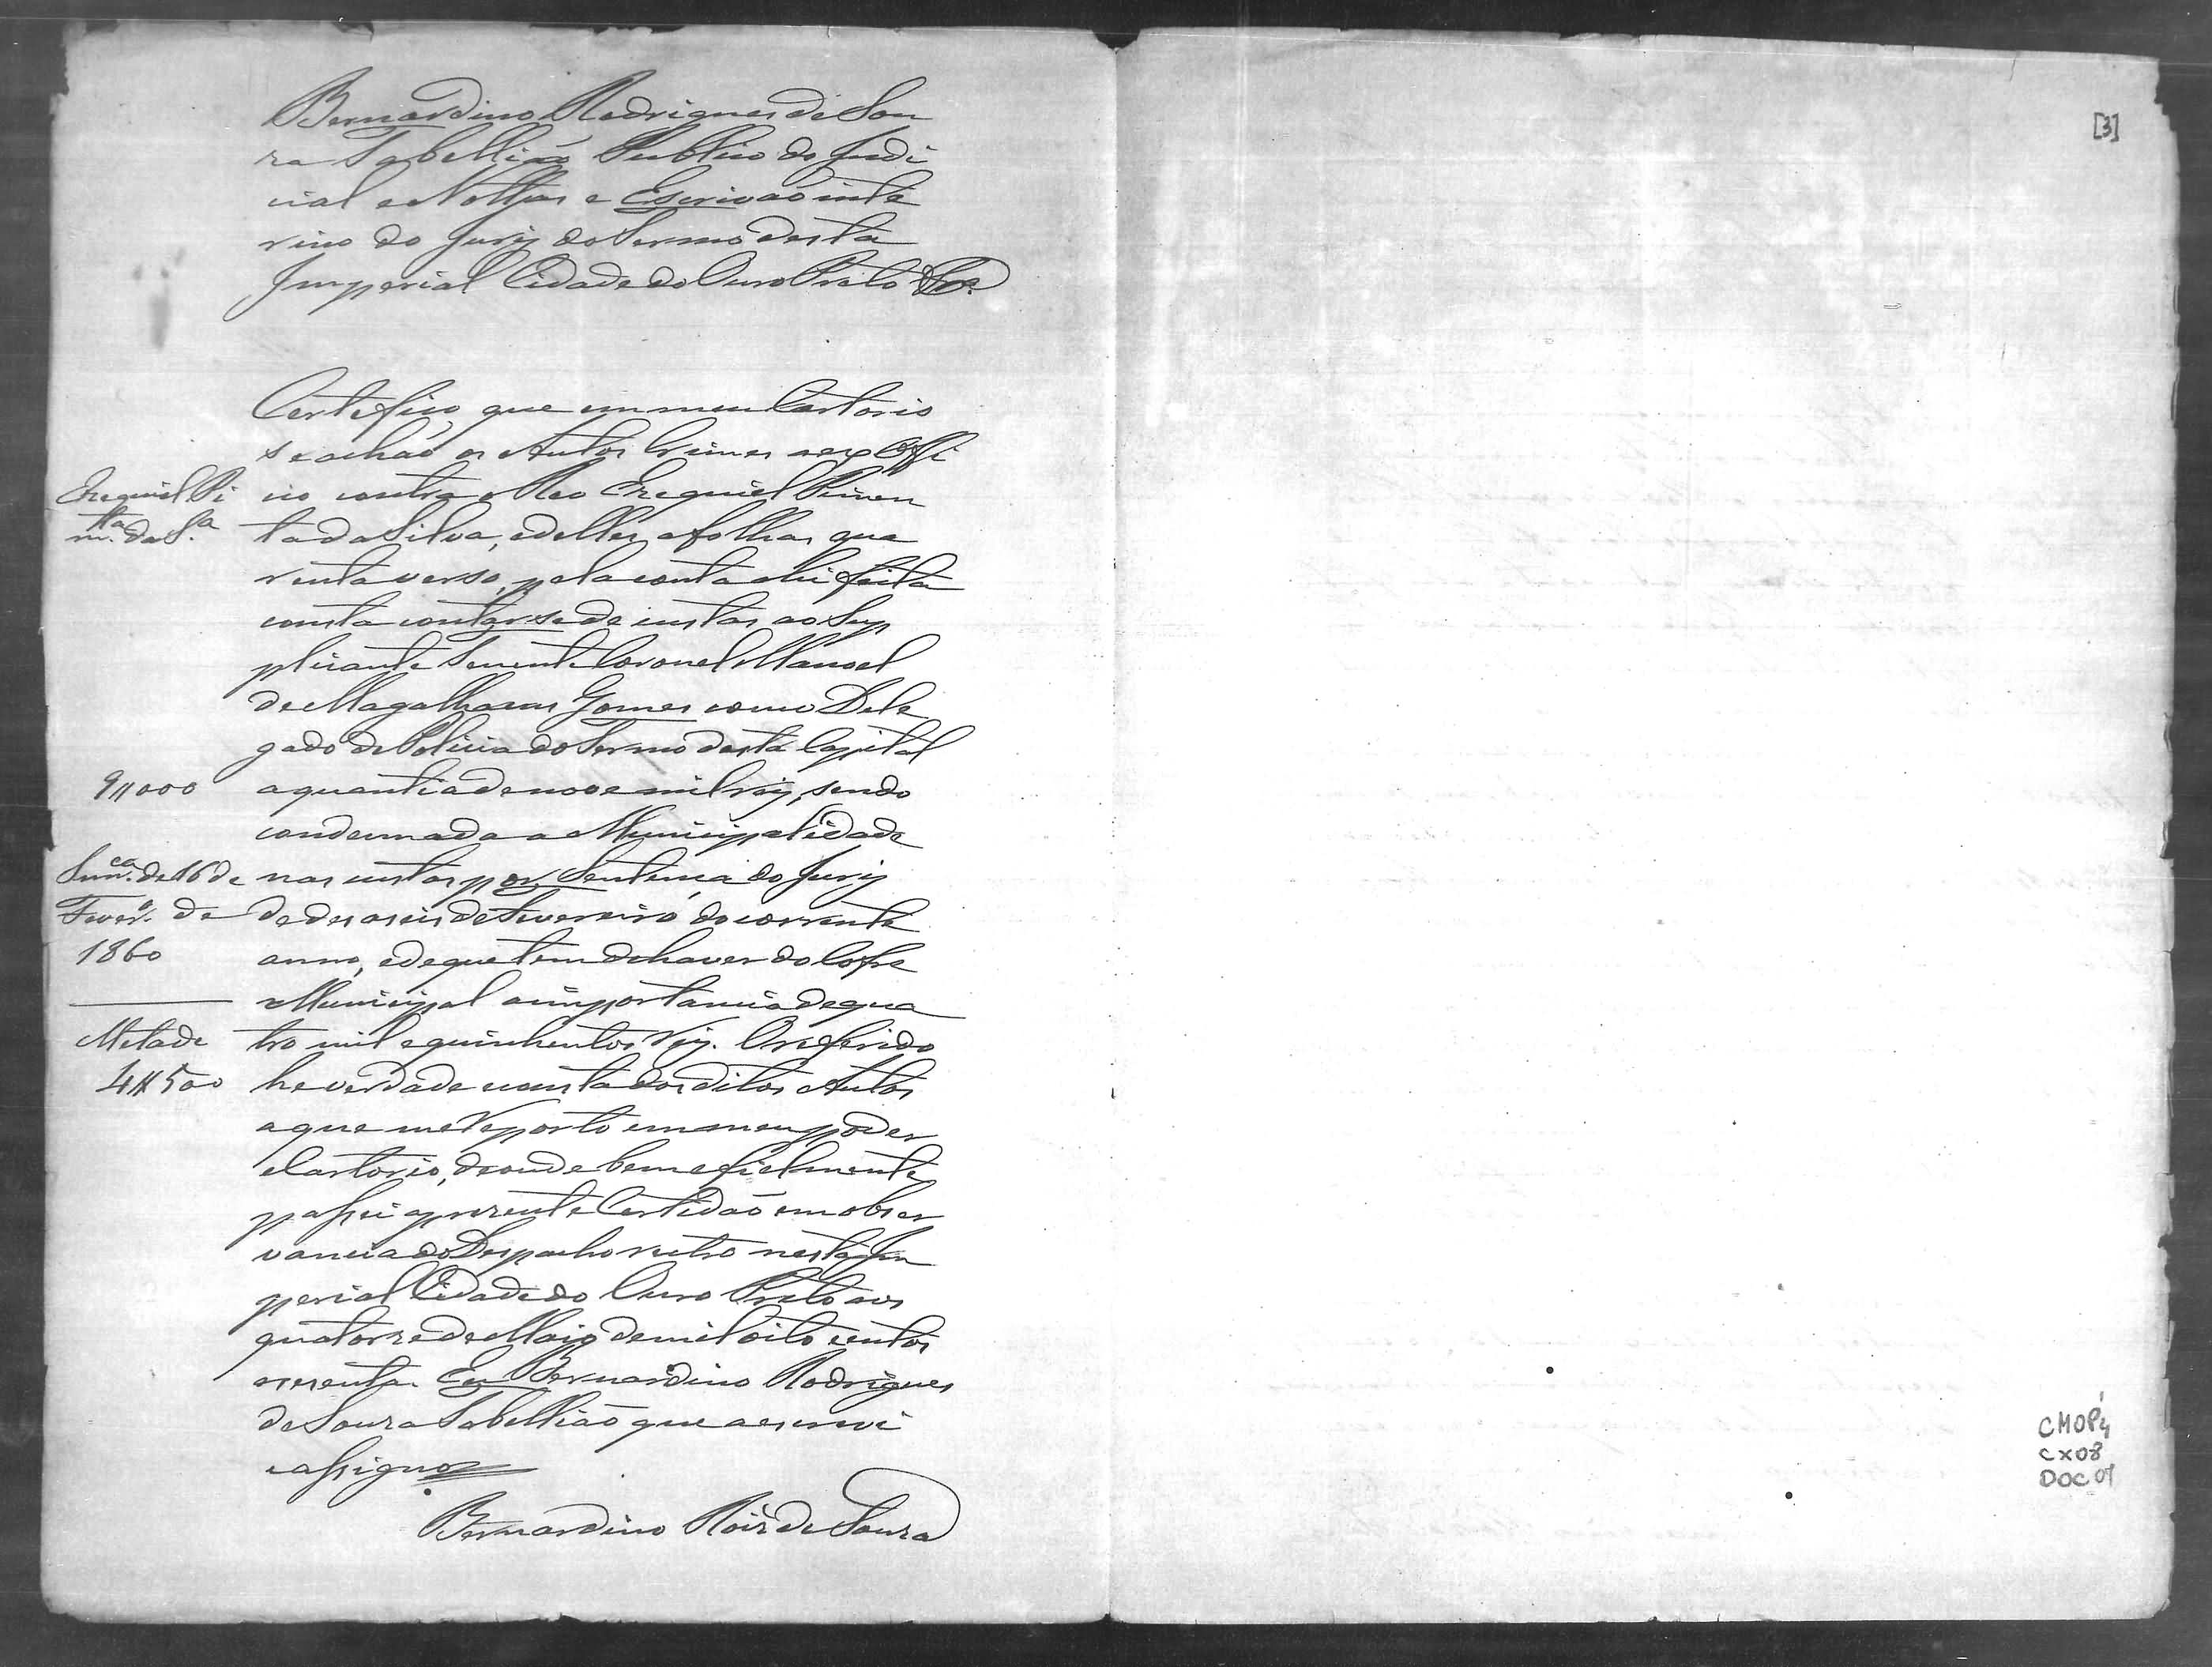 Bernardino Rodrigues de Sou
za Tabellião Publico do Judi
cial e Nottas e Escrivão inte
rino do Jury do Termo desta
Imperial Cidade do Ouro Preto &ra.
Certefico que em meu Cartorio
se achão os Autos Crimes a ex Offi
Ezequiel Pi
cio contra o Reo Ezequiel Pimen
m.ta da S.a
ta da Silva, e delles a folhas qua
renta verso, pela conta ahi feita
consta contar-se de custas ao Sup
plicante Tenente Coronel Manoel
de Magalhaens Gomes como Dele
gado de Policia do Termo desta Capital
9$000
a quantia de nove mil reis, sendo
condemnada a Municipalidade
Senn.ca de 16 de
nas custas por Sentença do Jury
Fever.o de
de desaseis de Fevereiro do corrente
1860
anno, e de que tem de haver do Cofre
Municipal a importancia de qua
Metade
tro mil e quinhentos reis. O referido
4$500
he verdade e consta dos ditos Autos
a que me reporto em meu poder
e Cartorio, de onde bem e fielmente
passei a presente Certidão em obser
vancia do Despacho retro nesta Im
perial Cidade do Ouro Preto aos
quatorze de Maio de mil oito centos
e sesenta. Eu Bernardino Rodrigues
de Souza Tabellião que a escrevi
e assigno
Bernardino Roiz de Souza
[3]
CMOP
CX08
DOC 01